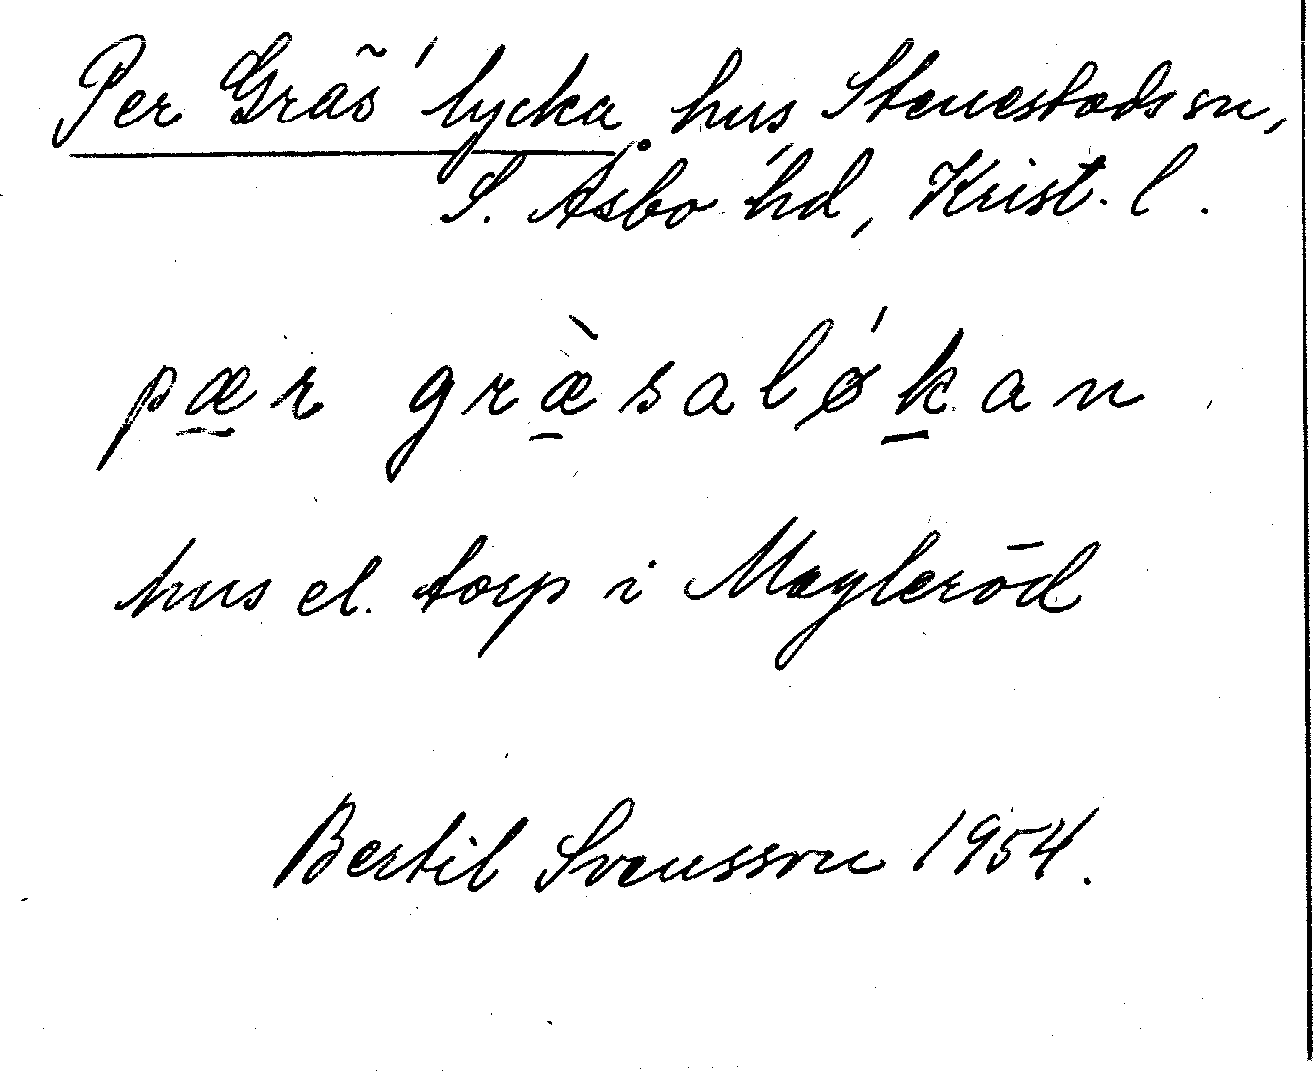 Per Gräs' lycka, hus, Stenestads sn,
S. Åsbo hd, Krist. l.
pær græ̀salǿkan
hus el. torp i Magleröd
Bertil Svensson 1954.